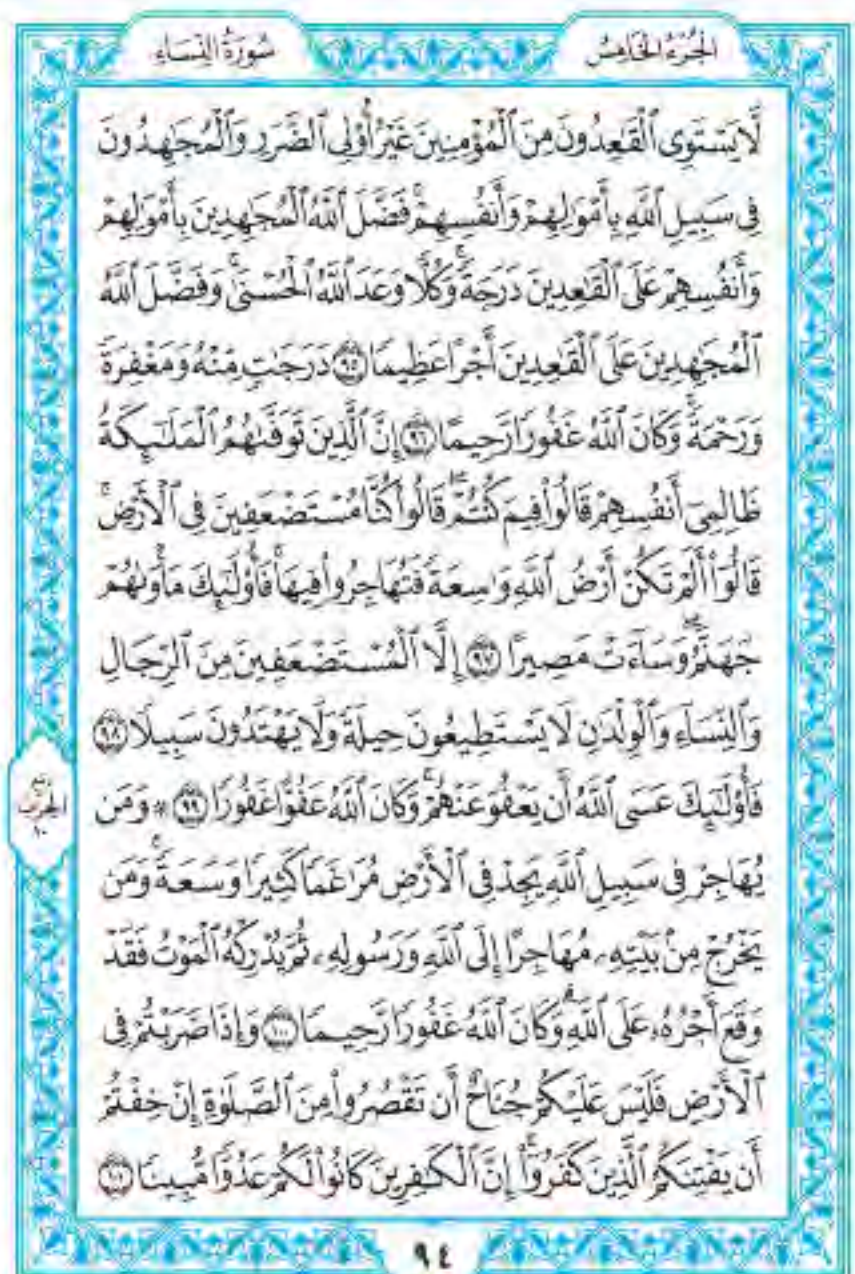 الجزء الخامس
سورة النساء
لَّا يَسْتَوِى ٱلْقَٰعِدُونَ مِنَ ٱلْمُؤْمِنِينَ غَيْرُ أُو۟لِى ٱلضَّرَرِ وَٱلْمُجَٰهِدُونَ
فِى سَبِيلِ ٱللَّهِ بِأَمْوَٰلِهِمْ وَأَنفُسِهِمْ ۚ فَضَّلَ ٱللَّهُ ٱلْمُجَٰهِدِينَ بِأَمْوَٰلِهِمْ
وَأَنفُسِهِمْ عَلَى ٱلْقَٰعِدِينَ دَرَجَةً ۚ وَكُلًّا وَعَدَ ٱللَّهُ ٱلْحُسْنَىٰ ۚ وَفَضَّلَ ٱللَّهُ
ٱلْمُجَٰهِدِينَ عَلَى ٱلْقَٰعِدِينَ أَجْرًا عَظِيمًا ٩٥ دَرَجَٰتٍ مِّنْهُ وَمَغْفِرَةً
وَرَحْمَةً ۚ وَكَانَ ٱللَّهُ غَفُورًا رَّحِيمًا ٩٦ إِنَّ ٱلَّذِينَ تَوَفَّىٰهُمُ ٱلْمَلَٰٓئِكَةُ
ظَالِمِىٓ أَنفُسِهِمْ قَالُوا۟ فِيمَ كُنتُمْ ۖ قَالُوا۟ كُنَّا مُسْتَضْعَفِينَ فِى ٱلْأَرْضِ ۚ
قَالُوٓا۟ أَلَمْ تَكُنْ أَرْضُ ٱللَّهِ وَٰسِعَةً فَتُهَاجِرُوا۟ فِيهَا ۚ فَأُو۟لَٰٓئِكَ مَأْوَىٰهُمْ
جَهَنَّمُ ۖ وَسَآءَتْ مَصِيرًا ٩٧ إِلَّا ٱلْمُسْتَضْعَفِينَ مِنَ ٱلرِّجَالِ
وَٱلنِّسَآءِ وَٱلْوِلْدَٰنِ لَا يَسْتَطِيعُونَ حِيلَةً وَلَا يَهْتَدُونَ سَبِيلًا ٩٨
فَأُو۟لَٰٓئِكَ عَسَى ٱللَّهُ أَن يَعْفُوَ عَنْهُمْ ۚ وَكَانَ ٱللَّهُ عَفُوًّا غَفُورًا ٩٩ ۞ وَمَن
ربع الحزب ١٠
يُهَاجِرْ فِى سَبِيلِ ٱللَّهِ يَجِدْ فِى ٱلْأَرْضِ مُرَٰغَمًا كَثِيرًا وَسَعَةً ۚ وَمَن
يَخْرُجْ مِنۢ بَيْتِهِۦ مُهَاجِرًا إِلَى ٱللَّهِ وَرَسُولِهِۦ ثُمَّ يُدْرِكْهُ ٱلْمَوْتُ فَقَدْ
وَقَعَ أَجْرُهُۥ عَلَى ٱللَّهِ ۗ وَكَانَ ٱللَّهُ غَفُورًا رَّحِيمًا ١٠٠ وَإِذَا ضَرَبْتُمْ فِى
ٱلْأَرْضِ فَلَيْسَ عَلَيْكُمْ جُنَاحٌ أَن تَقْصُرُوا۟ مِنَ ٱلصَّلَوٰةِ إِنْ خِفْتُمْ
أَن يَفْتِنَكُمُ ٱلَّذِينَ كَفَرُوٓا۟ ۚ إِنَّ ٱلْكَٰفِرِينَ كَانُوا۟ لَكُمْ عَدُوًّا مُّبِينًا ١٠١
٩٤